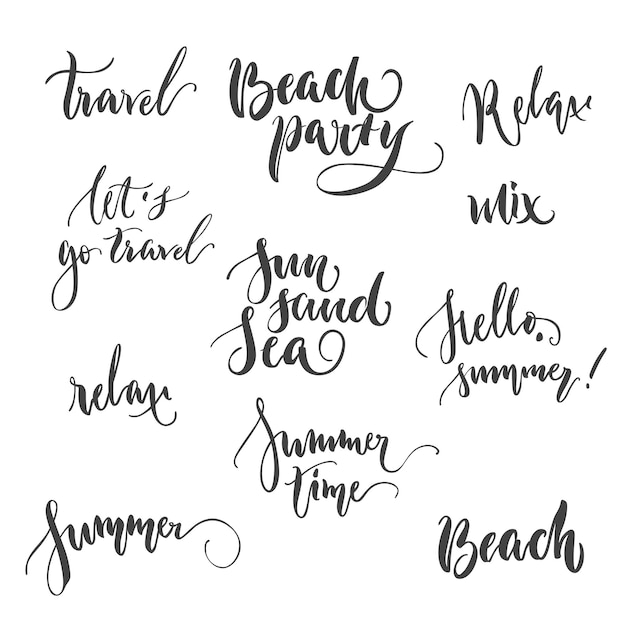 travel
Beach
party
Relax
let's
go travel
mix
Sun
sand
Sea
Hello,
summer!
relax
Summer
time
Summer
Beach